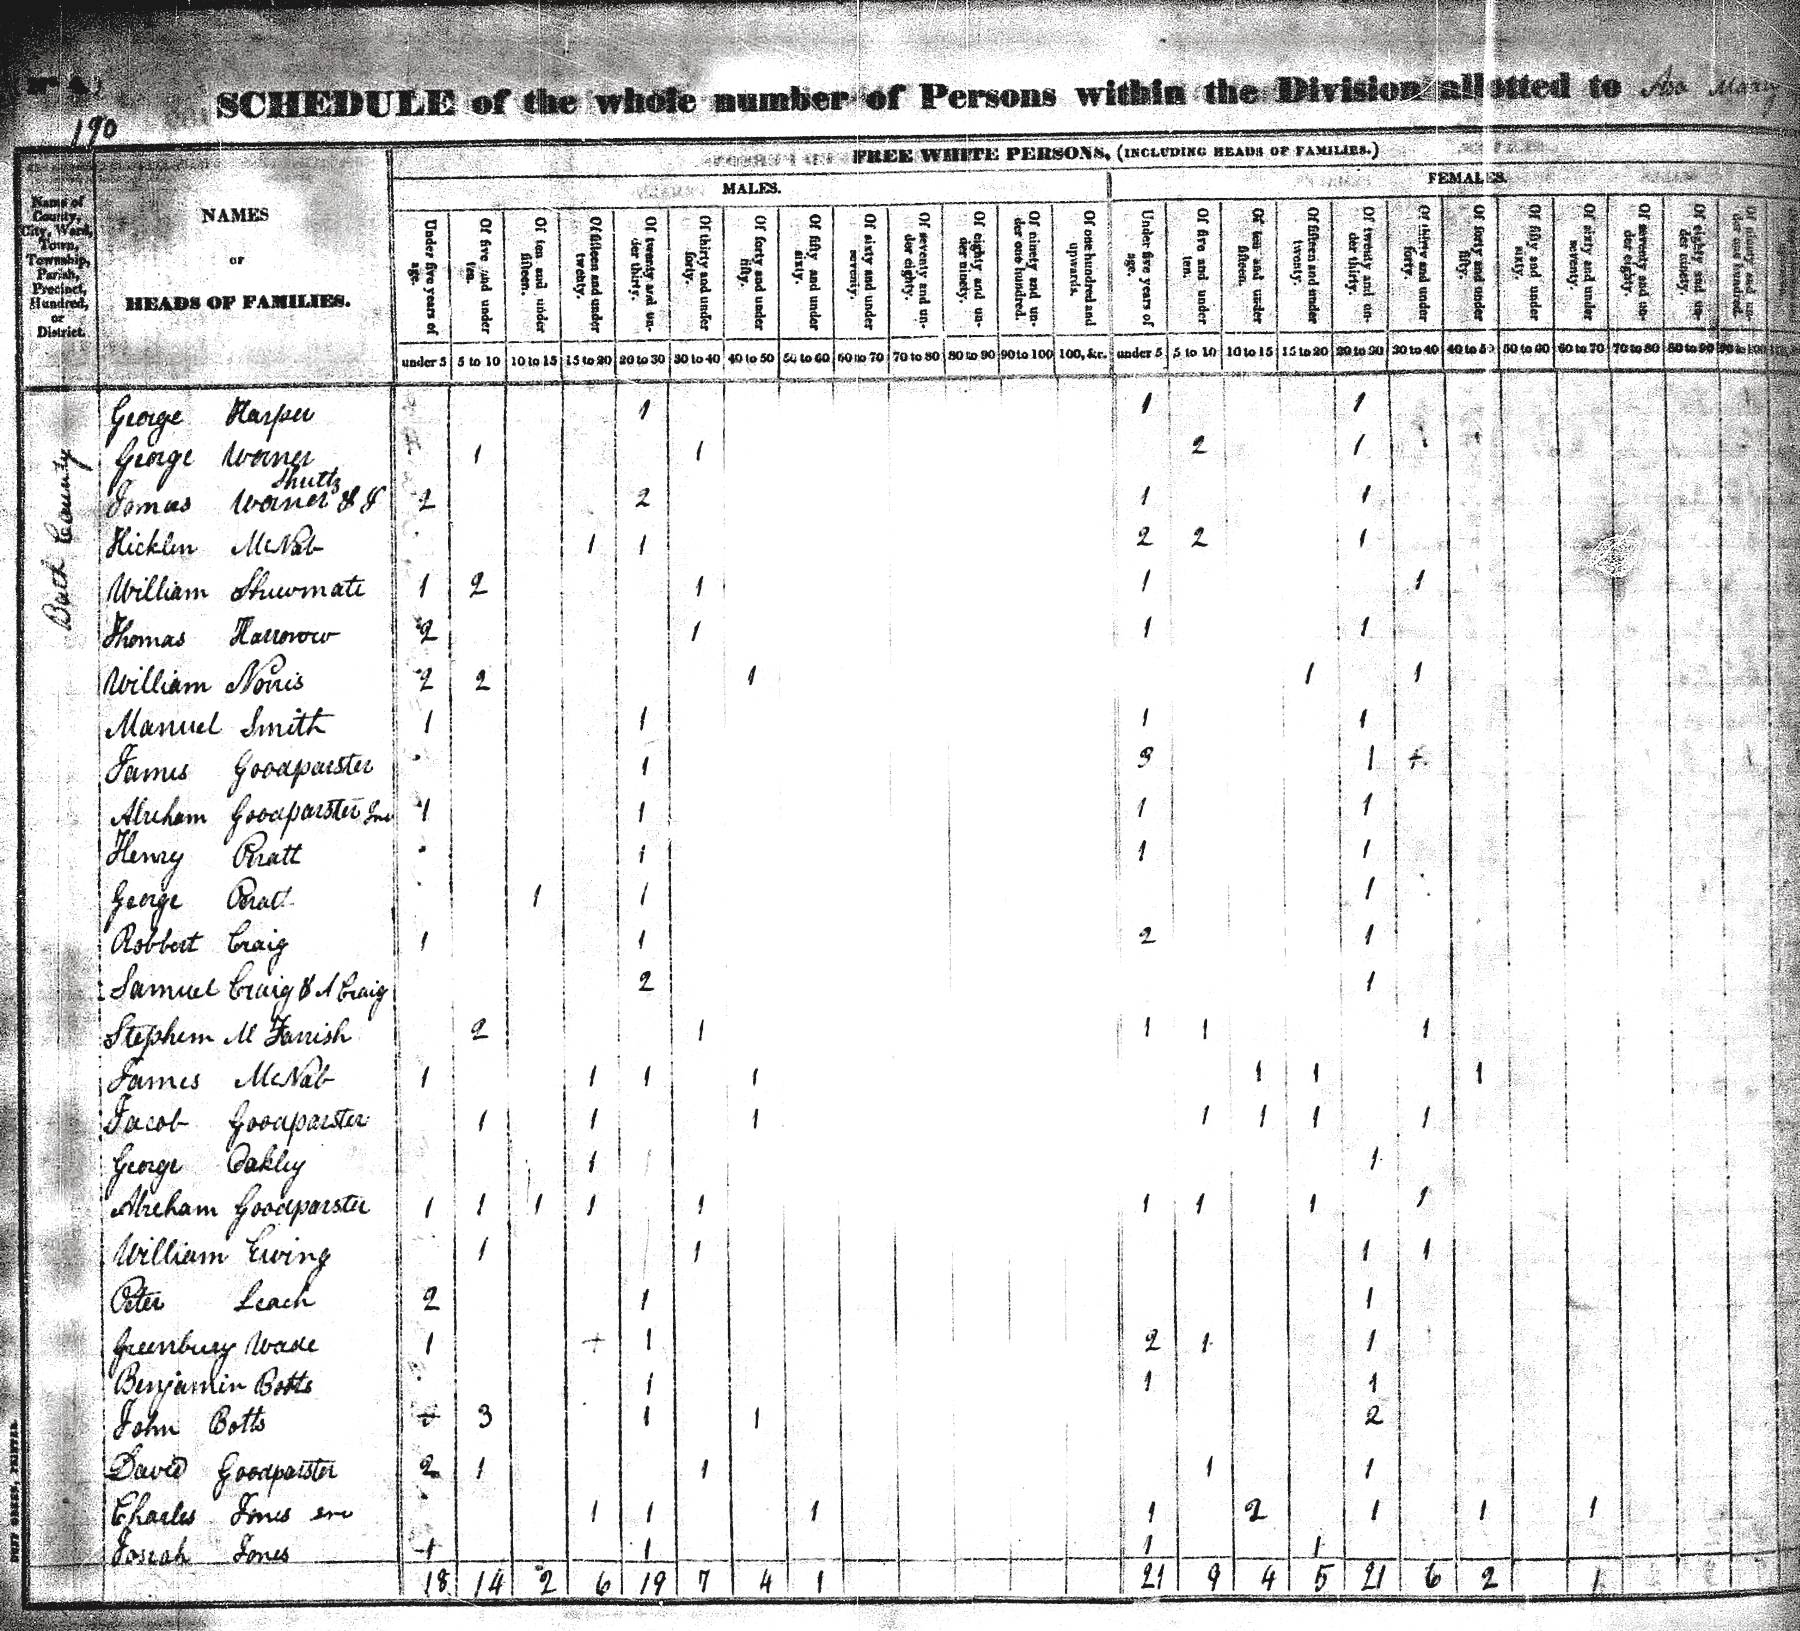 190
SCHEDULE of the whole number of Persons within the Division allotted to Asa Maxy
FREE WHITE PERSONS, (INCLUDING HEADS OF FAMILIES.)
MALES. FEMALES.
Name of County, City, Ward, Town, Township, Parish, Precinct, Hundred, or District.
NAMES
or
HEADS OF FAMILIES.
Under five years of age. Of five and under ten. Of ten and under fifteen. Of fifteen and under twenty. Of twenty and under thirty. Of thirty and under forty. Of forty and under fifty. Of fifty and under sixty. Of sixty and under seventy. Of seventy and under eighty. Of eighty and under ninety. Of ninety and under one hundred. Of one hundred and upwards. Under five years of age. Of five and under ten. Of ten and under fifteen. Of fifteen and under twenty. Of twenty and under thirty. Of thirty and under forty. Of forty and under fifty. Of fifty and under sixty. Of sixty and under seventy. Of seventy and under eighty. Of eighty and under ninety. Of ninety and under one hundred.
under 5 5 to 10 10 to 15 15 to 20 20 to 30 30 to 40 40 to 50 50 to 60 60 to 70 70 to 80 80 to 90 90 to 100 100, &c. under 5 5 to 10 10 to 15 15 to 20 20 to 30 30 to 40 40 to 50 50 to 60 60 to 70 70 to 80 80 to 90 90 to 100
Bath County
George Harper 1 1 1
George Worner 1 1 2 1
Shultz
Tomas Worner & J 2 2 1 1
Hicklen McNab 1 1 2 2 1
William Shuemate 1 2 1 1 1
Thomas Harrorow 2 1 1 1
William Norris 2 2 1 1 1
Manuel Smith 1 1 1 1
James Goodparster 1 3 1 +
Abreham Goodparster Jnr 1 1 1 1
Henry Pratt 1 1 1
George Pratt 1 1 1
Robbert Craig 1 1 2 1
Samuel Craig & A Craig 2 1
Stephem M Farrish 2 1 1 1 1
James McNab 1 1 1 1 1 1 1
Jacob Goodparster 1 1 1 1 1 1 1
George Oakley 1 1
Abreham Goodparster 1 1 1 1 1 1 1 1 1
William Ewing 1 1 1 1
Peter Leach 2 1 1
Greenbury Wade 1 + 1 2 1 1
Benjamin Botts 1 1 1
John Botts + 3 1 1 2
David Goodparster 2 1 1 1 1
Charles Jones snr 1 1 1 1 2 1 1 1
Josiah Jones 1 1 1 1
18 14 2 6 19 7 4 1 21 9 4 5 21 6 2 1